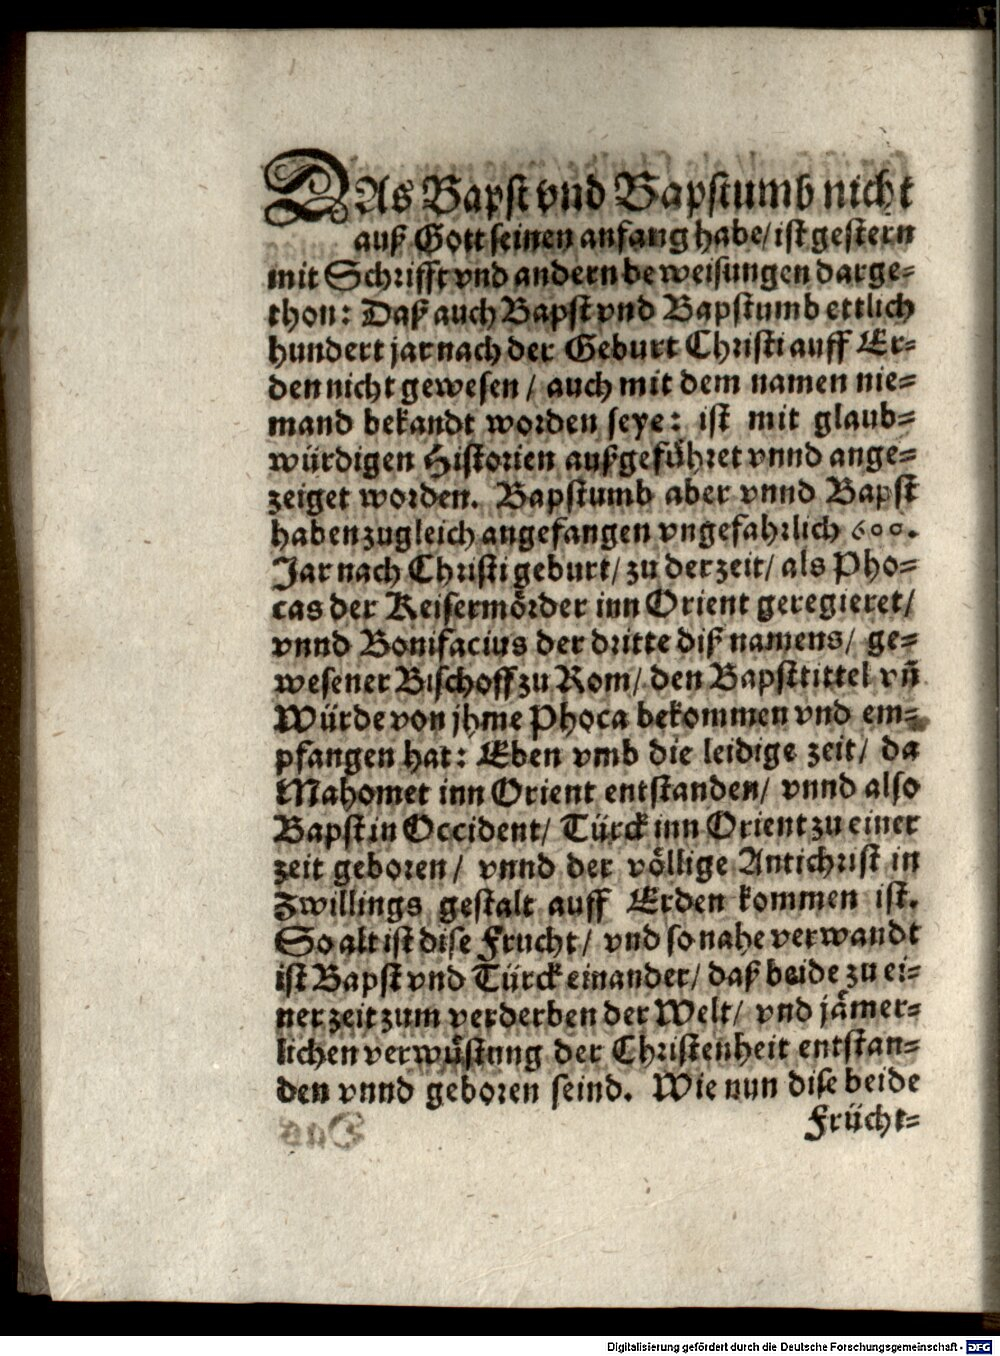 DAs Bapst vnd Bapstumb nicht
auß Gott seinen anfang habe/ ist gestern
mit Schrifft vnd andern beweisungen darge-
thon: Daß auch Bapst vnd Bapstumb ettlich
hundert jar nach der Geburt Christi auff Er-
den nicht gewesen / auch mit dem namen nie-
mand bekandt worden seye: ist mit glaub-
würdigen Historien außgeführet vnnd ange-
zeiget worden. Bapstumb aber vnnd Bapst
haben zugleich angefangen vngefahrlich 600.
Jar nach Christi geburt/ zu der zeit/ als Pho-
cas der Keisermörder inn Orient geregieret/
vnnd Bonifacius der dritte diß namens/ ge-
wesener Bischoff zu Rom/ den Bapsttittel vñ
Würde von jhme Phoca bekommen vnd em-
pfangen hat: Eben vmb die leidige zeit/ da
Mahomet inn Orient entstanden/ vnnd also
Bapst in Occident/ Türck inn Orient zu einer
zeit geboren / vnnd der völlige Antichrist in
Zwillings gestalt auff Erden kommen ist.
So alt ist dise Frucht/ vnd so nahe verwandt
ist Bapst vnd Türck einander/ daß beide zu ei-
ner zeit zum verderben der Welt/ vnd jämer-
lichen verwüstung der Christenheit entstan-
den vnnd geboren seind. Wie nun dise beide
Frücht-
Digitalisierung gefördert durch die Deutsche Forschungsgemeinschaft - DFG